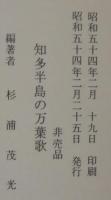 昭和五十四年二月 十九日 印刷
昭和五十四年二月二十五日 発行
非売品
知多半島の万葉歌
編著者 杉浦茂光